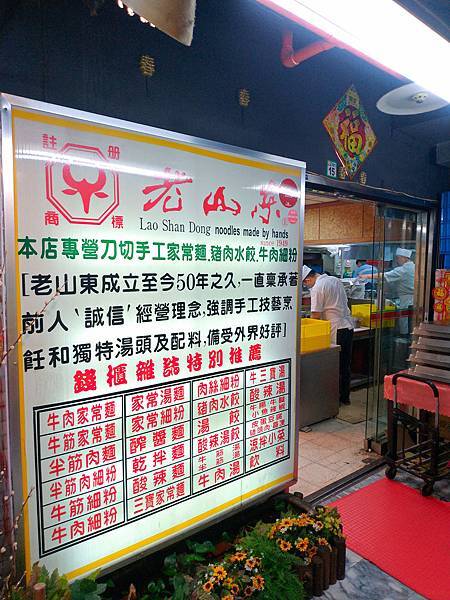 註冊
商標
老山东
Lao Shan Dong noodles made by hands
since 1949
本店專營刀切手工家常麵.豬肉水餃.牛肉細粉
[老山東成立至今50年之久,一直稟承著
前人‵誠信′經營理念,強調手工技藝烹
飪和獨特湯頭及配料,備受外界好評]
錢櫃雜誌特別推薦
牛肉家常麵 家常湯麵 肉絲細粉 牛三寶湯
牛筋家常麵 家常細粉 豬肉水餃 酸辣湯
半筋肉麵 醡醬麵 湯餃
半筋肉細粉 乾拌麵 酸辣湯餃
牛筋細粉 酸辣麵 涼拌小菜
牛肉細粉 三寶家常麵 牛肉湯 飲料
福
15